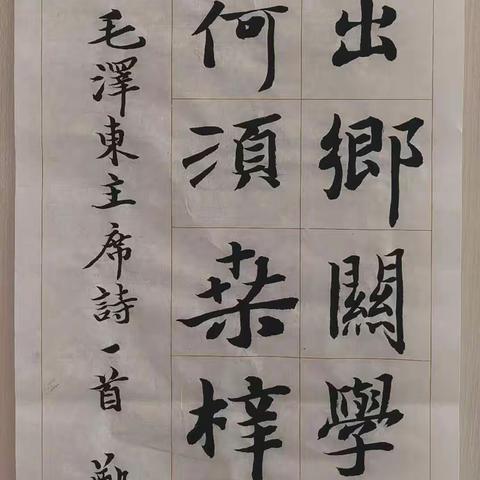 出鄉關學
何須桑梓
毛澤東主席詩一首